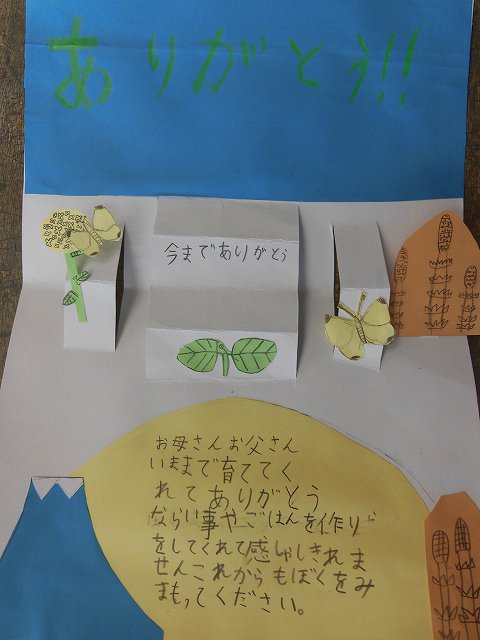 ありがとう!!
今までありがとう
お母さんお父さん
いままで育ててく
れてありがとう
ならい事やごはんを作り
をしてくれて感しゃしきれま
せんこれからもぼくをみ
まもってください。